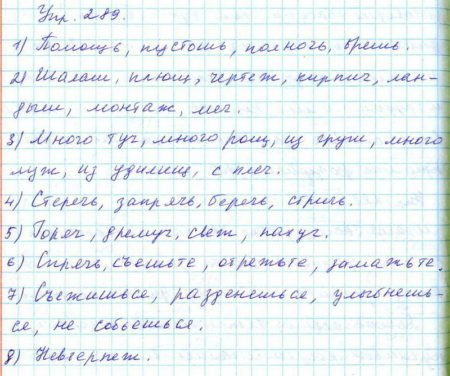 Упр. 289.
1) Помощь, пустошь, полночь, брешь.
2) Шалаш, плющ, чертеж, кирпич, лан-
дыш, монтаж, меч.
3) Много туч, много рощ, из груш, много
луж, из удилищ, с плеч.
4) Стеречь, запрячь, беречь, стричь.
5) Горяч, дремуч, свеж, пахуч.
6) Спрячь, съешьте, отрежьте, замажьте.
7) Съежишься, разденешься, улыбнешь-
ся, не собьешься.
8) Невтерпеж.